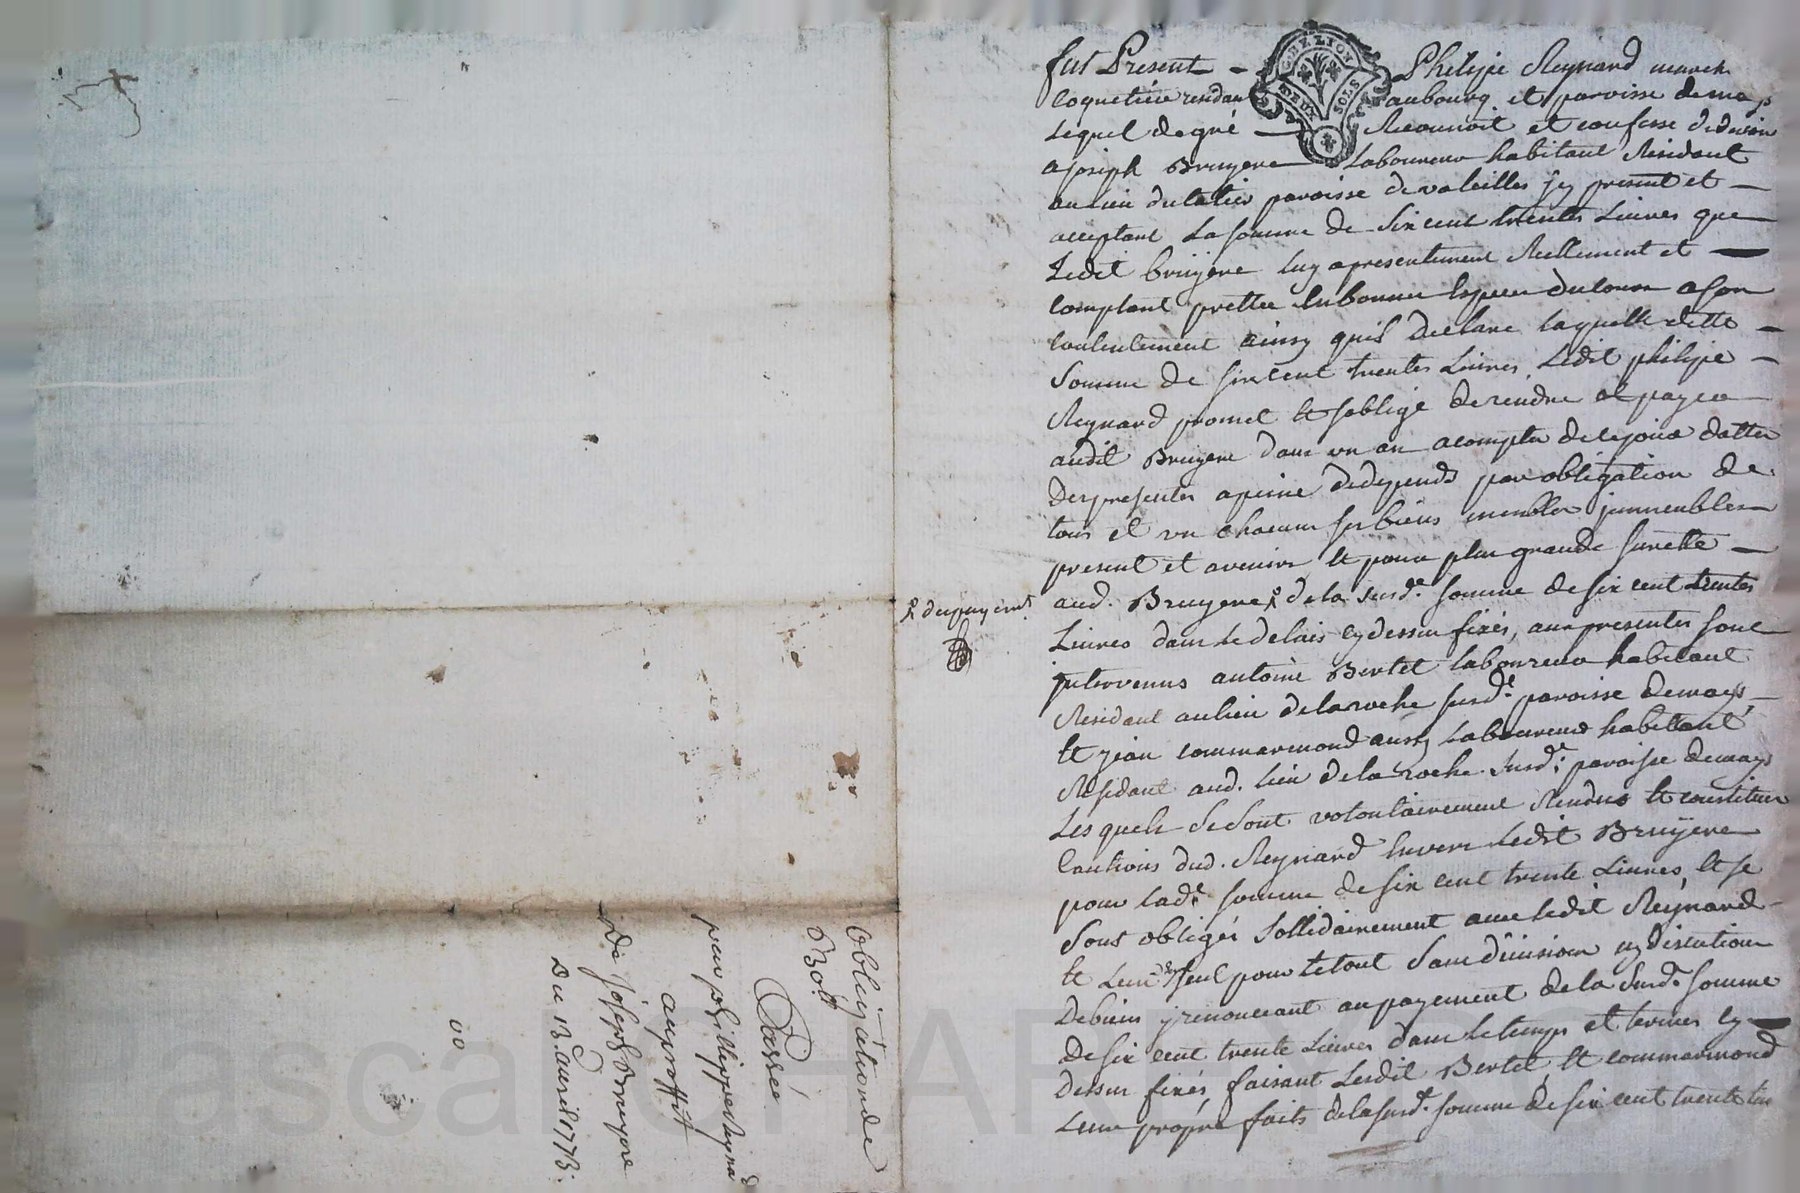 fut Present Philipe Reynard march
coquetier resdan aubourg et paroisse demays
Lequel degré Reconnoit et confesse dedevoir
a joseph Bruyere Laboureur habitant Residant
aulieu dulatier paroisse devaleilles jcy present et
acceptant La somme de six cent trentes Livres que
Ledit bruÿere luy apresentement Reellement et
comptant prettée Enbonnes Espece ducour ason
contentement ainsy quil declare laquelle ditte
Somme de six cent trentes Livres Ledit philipe
Reynard promet Et soblige derendre et payer
audit Bruyere dans un an acompter decejour datte
Des presentes apeine dedepends par obligation de
tous et un chacun ses biens meubles jmmeubles
present et avenirs Et pour plus grande surette
aud. Bruyere de la susd.e somme de six cent trentes
Livres dans le delais cy dessus fixés, aux presentes sont
jntervenus antoine Bertet laboureur habitant
Residant aulieu delaroche susd.e paroisse demays
Et jean commarmond aussy Laboureur habitant
Residant aud. lieu de la roche susd.e paroisse demays
Lesquels se sont volontairement Rendus Et constitues
Cautions dud. Reynard Envers Ledit Bruÿere
pour lad.e somme de six cent trente Livres, Et se
Sont obligés sollidairement avec ledit Reynard
Et seul pour letout sans division ny discution
De biens y renonceant au payement de la susd.e somme
de six cent trente Livres dans letemps et termes cy
dessus fixés, faisant Lesdit Bertet Et commarmond
Leur propre faits delasusd.e somme de six cent trente
dupayemt.
obligation de
630ll
Passée
par phillippe Reynard
auproffit
de joseph Bruyere
Du 13. avril 1773.
GN.LION
DEUX SOLS